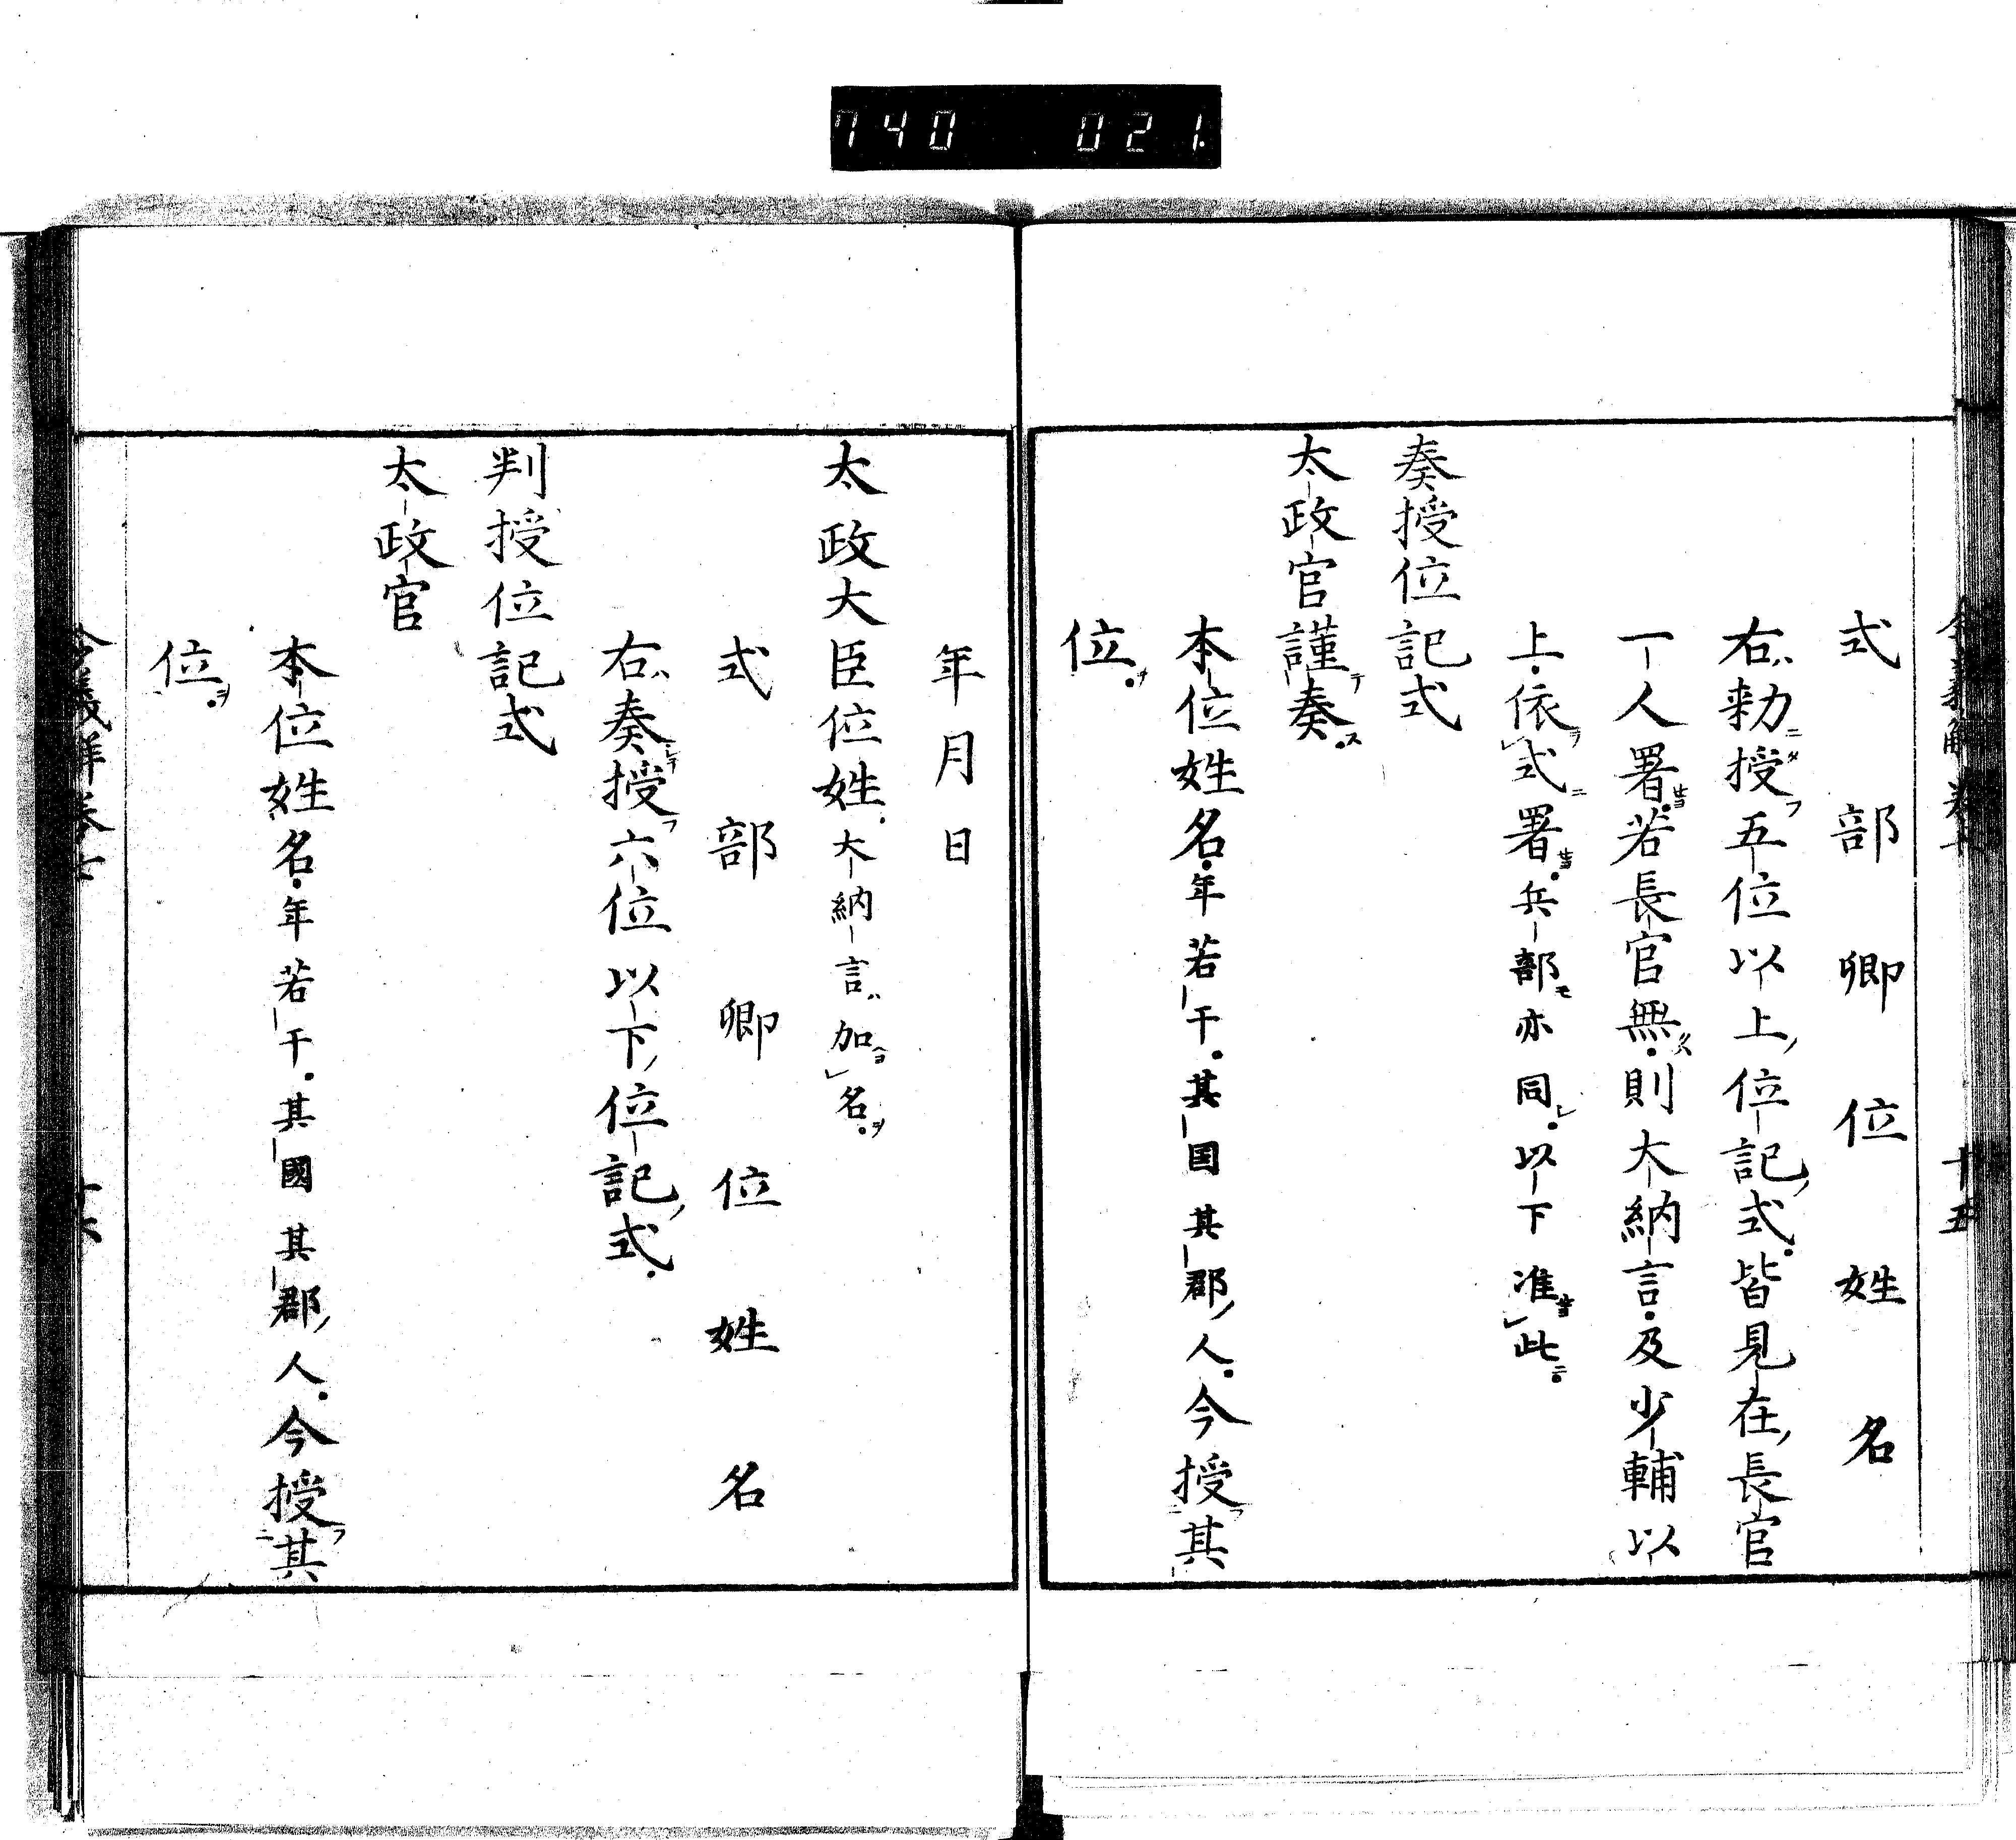 740 021
式部卿位姓名
右勅授五位以上位記式皆見在長官
一人署若長官無則大納言及少輔以
上依式署兵部亦同以下准此
奏授位記式
太政官謹奏
本位姓名年若干其国其郡人今授其
位
年月日
太政大臣位姓大納言加名
式部卿位姓名
右奏授六位以下位記式
判授位記式
太政官
本位姓名年若干其國其郡人今授其
位